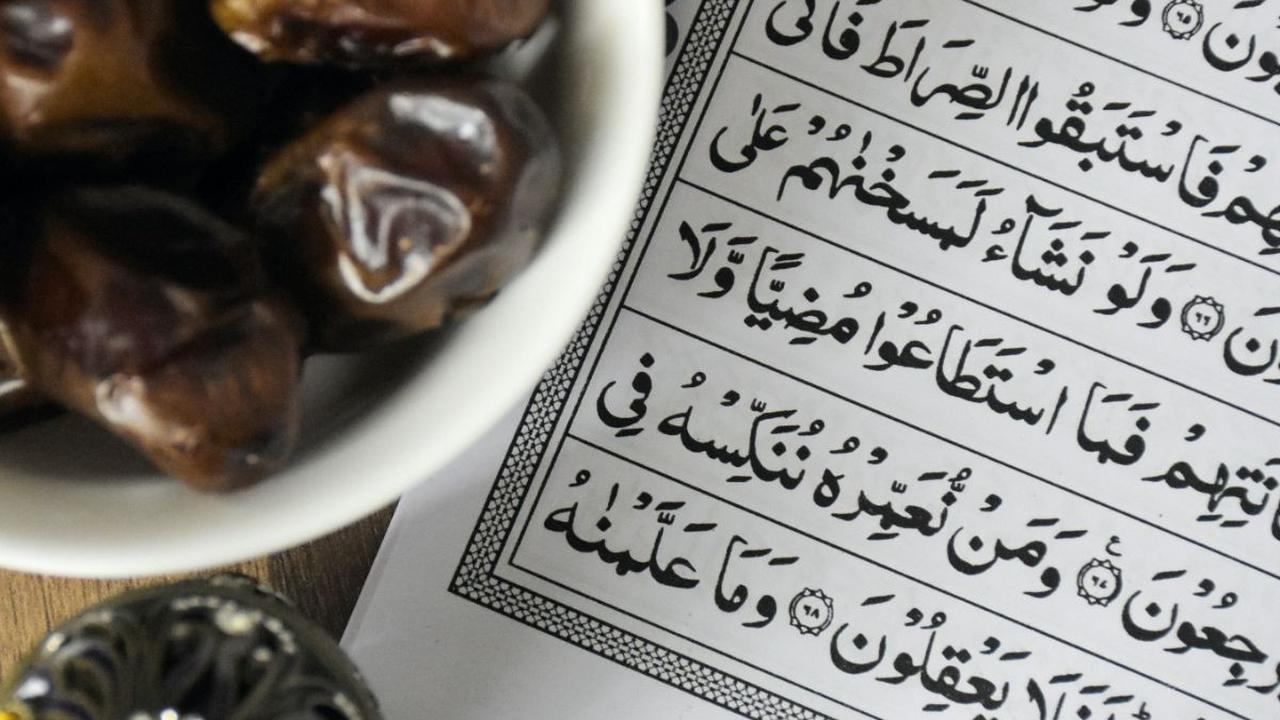 وْنَ ۝٦٥ وَلَوْ
هِمْ فَاسْتَبَقُوا الصِّرَاطَ فَاَنّٰى
وْنَ ۝٦٦ وَلَوْ نَشَآءُ لَمَسَخْنٰهُمْ عَلٰى
مَكَانَتِهِمْ فَمَا اسْتَطَاعُوْا مُضِيًّا وَّلَا
يَرْجِعُوْنَ ۝٦٧ وَمَنْ نُّعَمِّرْهُ نُنَكِّسْهُ فِى
اَفَلَا يَعْقِلُوْنَ ۝٦٨ وَمَا عَلَّمْنٰهُ